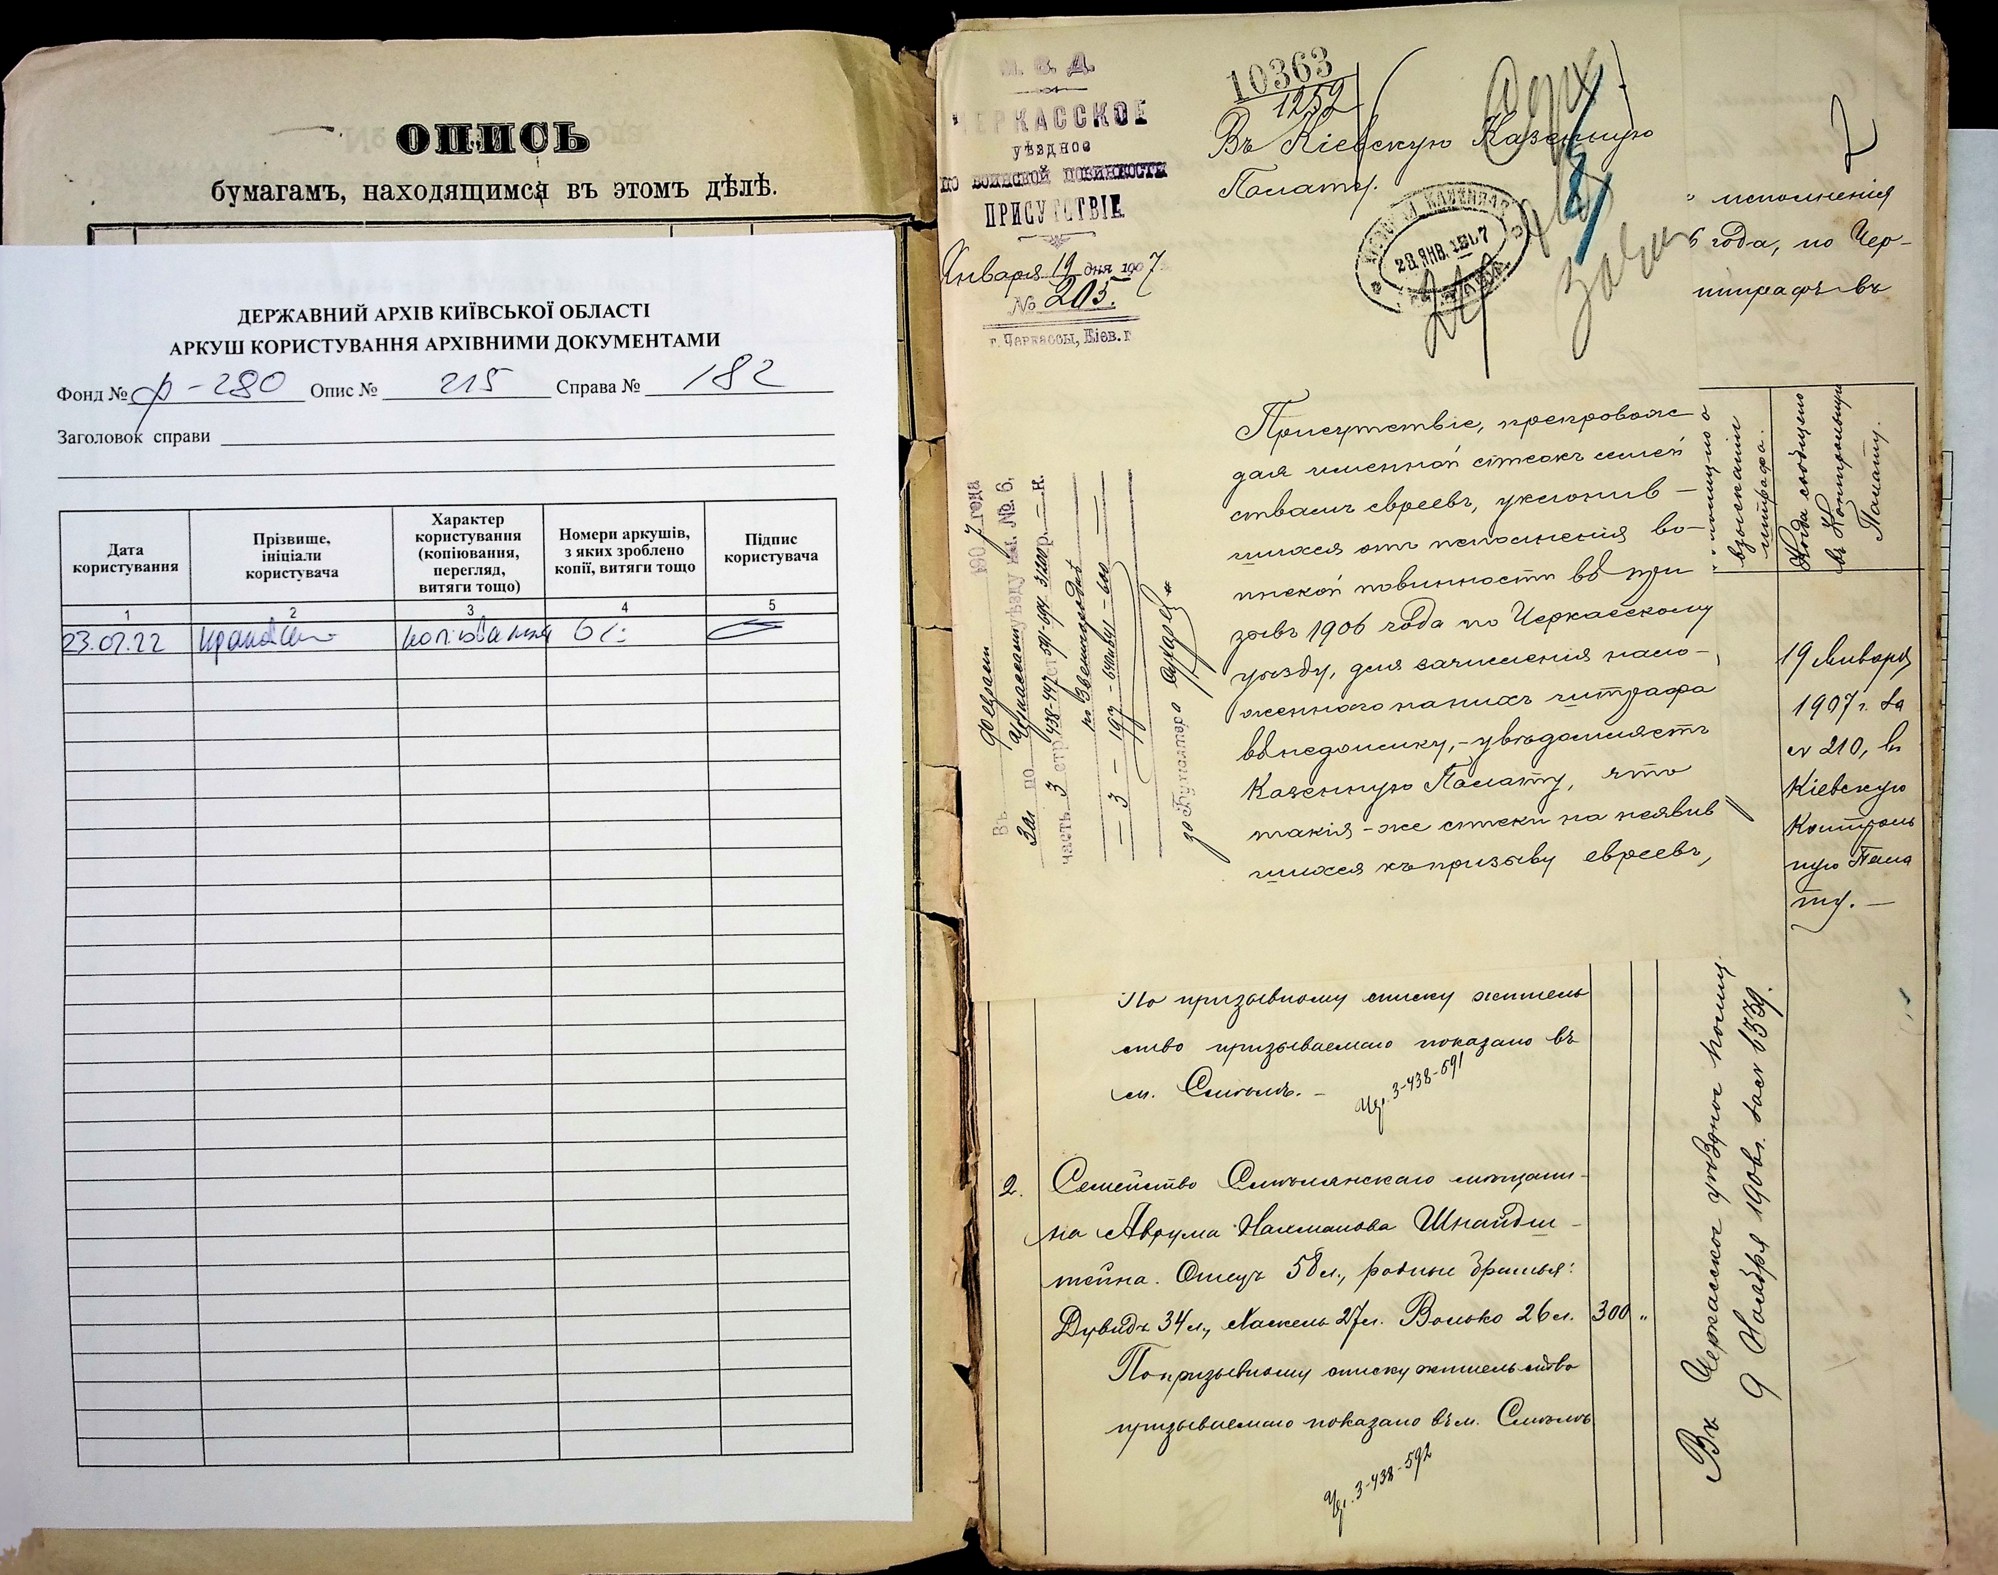 ОПИСЬ
бумагамъ, находящимся въ этомъ дѣлѣ.
ДЕРЖАВНИЙ АРХІВ КИЇВСЬКОЇ ОБЛАСТІ
АРКУШ КОРИСТУВАННЯ АРХІВНИМИ ДОКУМЕНТАМИ
Фонд № ф-280 Опис № 215 Справа № 182
Заголовок справи
Дата користування
Прізвище, ініціали користувача
Характер користування (копіювання, перегляд, витяги тощо)
Номери аркушів, з яких зроблено копії, витяги тощо
Підпис користувача
1 2 3 4 5
23.02.22 копіювання
М. В. Д.
ЧЕРКАССКОЕ
уѣздное
по воинской повинности
ПРИСУТСТВІЕ
Января 19 дня 1907
№ 205.
г. Черкассы, Кіев. г.
10363
1252
Въ Кіевскую Казенную
Палату.
20 ЯНВ. 1907
исполненія
6 года, по Чер-
штрафъ въ
Присутствіе, препровож
дая именной списокъ семей
ствамъ евреевъ, уклонив-
шихся отъ исполненія во-
инской повинности въ при
зывъ 1906 года по Черкасскому
уѣзду, для зачисленія нало-
женнаго на нихъ штрафа
въ недоимку,- увѣдомляетъ
Казенную Палату, что
такія-же списки на неявив
шихся къ призыву евреевъ,
взысканіи
штрафа.
Когда сообщено
въ Контрольную
Палату.
19 Января
1907 г. за
№ 210, въ
Кіевскую
Контроль
ную Пала
ту. —
Въ 1907 года
по уѣзду кн. № 6,
часть 3 стр. 438-447 ст. 591-694 31200 р. — к.
— 3 — 197 —
Бухгалтера
По призывному списку житель
ство призываемаго показано въ
м. Смѣлѣ. -
3-438-591
2. Семейство Смѣлянскаго мѣщани-
на Аврума Нахманова Шнайдш-
тейна. Отецъ 58 л., родные братья:
Дувидъ 34 л., Хаскель 27 л. Волько 26 л. 300 "
По призывному списку жительство
призываемаго показано въ м. Смѣлѣ
3-438-592
Въ Черкасское уѣздное полиц.
9 Ноября 1906 г. за № 1539.